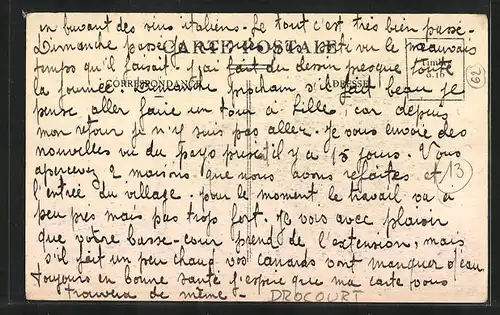 en buvant des vins italiens. Le tout s'est très bien passé.
Dimanche passé je ne suis pas sorti vu le mauvais
CARTE POSTALE
temps qu'il faisait. J'ai fait du dessin presque toute
CORRESPONDANCE ADRESSE
la journée. Dimanche prochain s'il fait beau je
pense aller faire un tour à Lille, car depuis
mon retour je n'y suis pas aller. Je vous envoie des
nouvelles vu du pays prise il y a 15 jours. Vous
apercevez 2 maisons que nous avons refaites et
l'entrée du village. Pour le moment le travail va à
peu près mais pas trop fort. Je vois avec plaisir
que votre basse-cour prend de l'extension, mais
s'il fait un peu chaud vos canards vont manquer d'eau.
Toujours en bonne santé j'espère que ma carte vous
trouvera de même.
DROCOURT
62
13